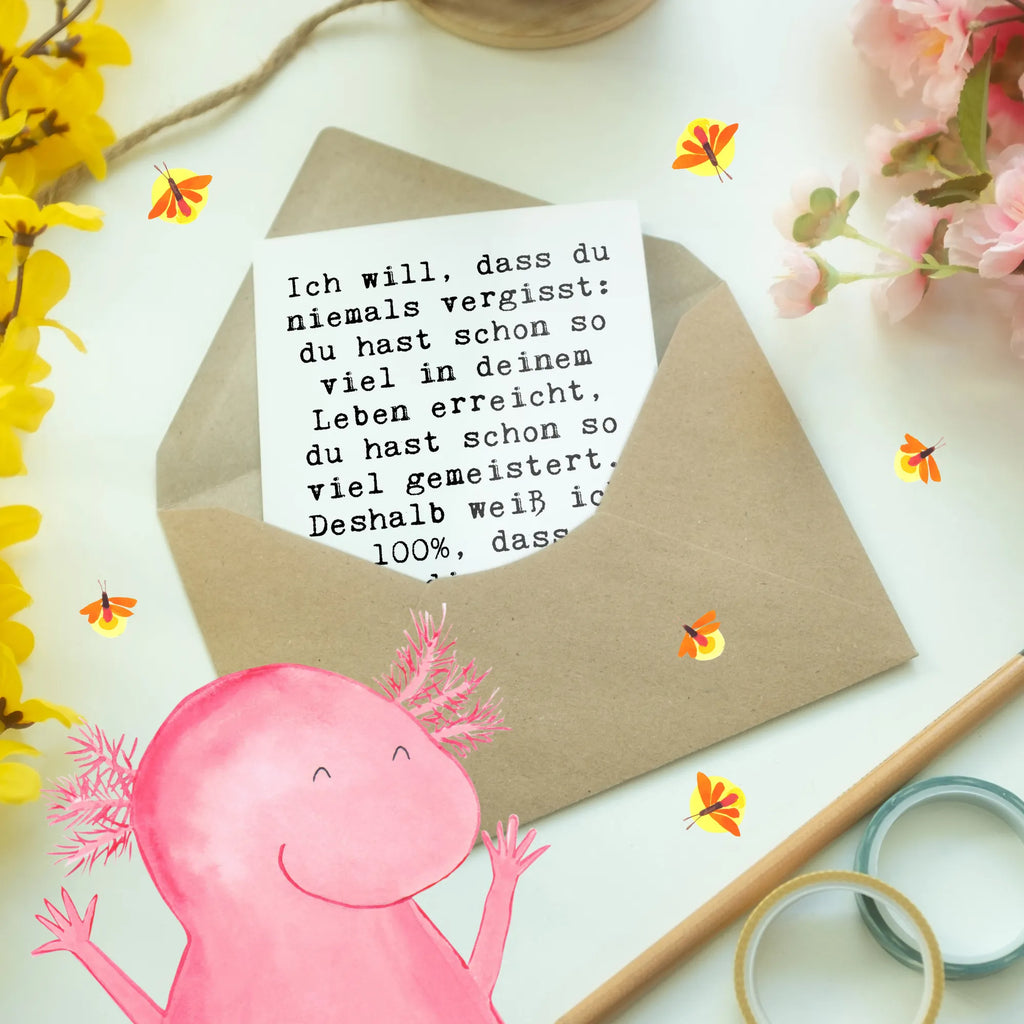 Ich will, dass du
niemals vergisst:
du hast schon so
viel in deinem
Leben erreicht,
du hast schon so
viel gemeistert.
Deshalb weiß
100%, dass